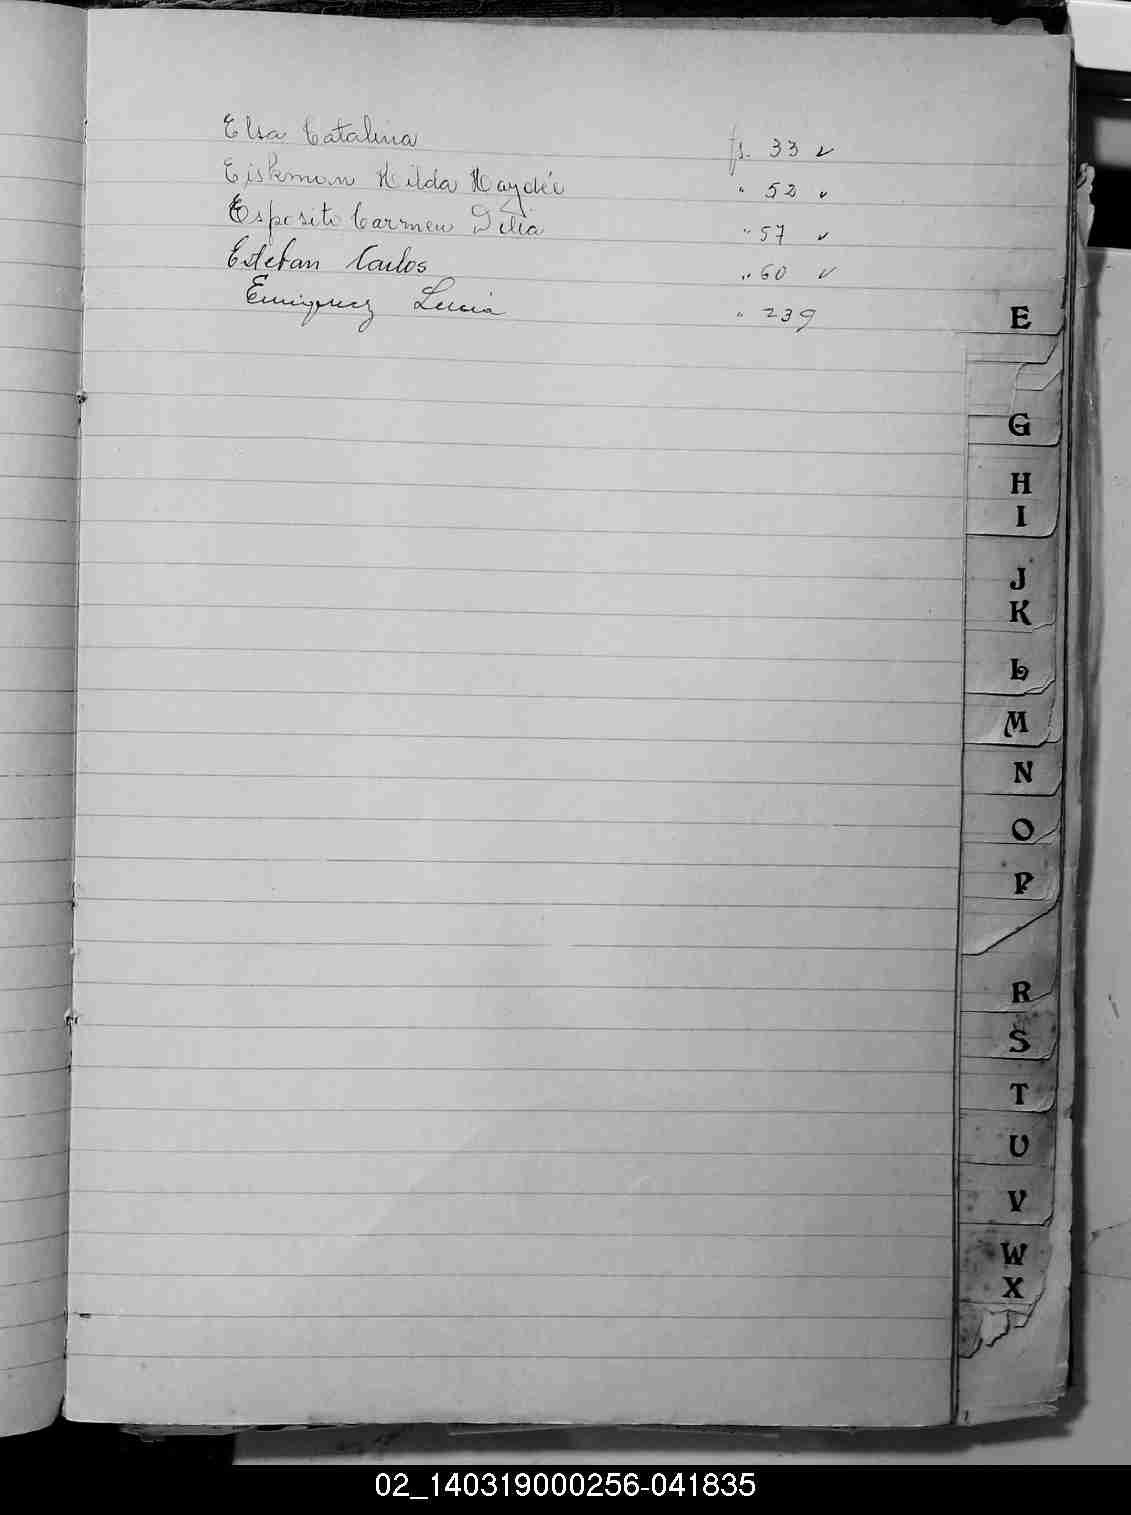 Elsa Catalina fs. 33 ✓
Eiskman Hilda Haydée " 52 ✓
Esposito Carmen Delia " 57 ✓
Esteban Carlos " 60 ✓
Lucia " 239
E
G
H
I
J
K
L
M
N
O
P
R
S
T
U
V
W
X
02_140319000256-041835